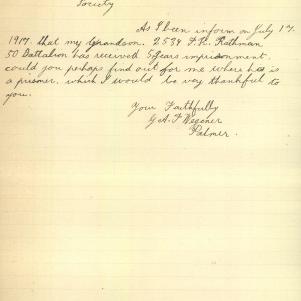 Society
As I been inform on July 17.
1917. that my Grandson. 2534 F.R. Rathman
50 Battalion has received 5 years imprisonment.
could you perhaps find out for me where he is
a prisoner, which I would be very thankful to
you.
Your Faithfully
G.A.F Wegener
Palmer.